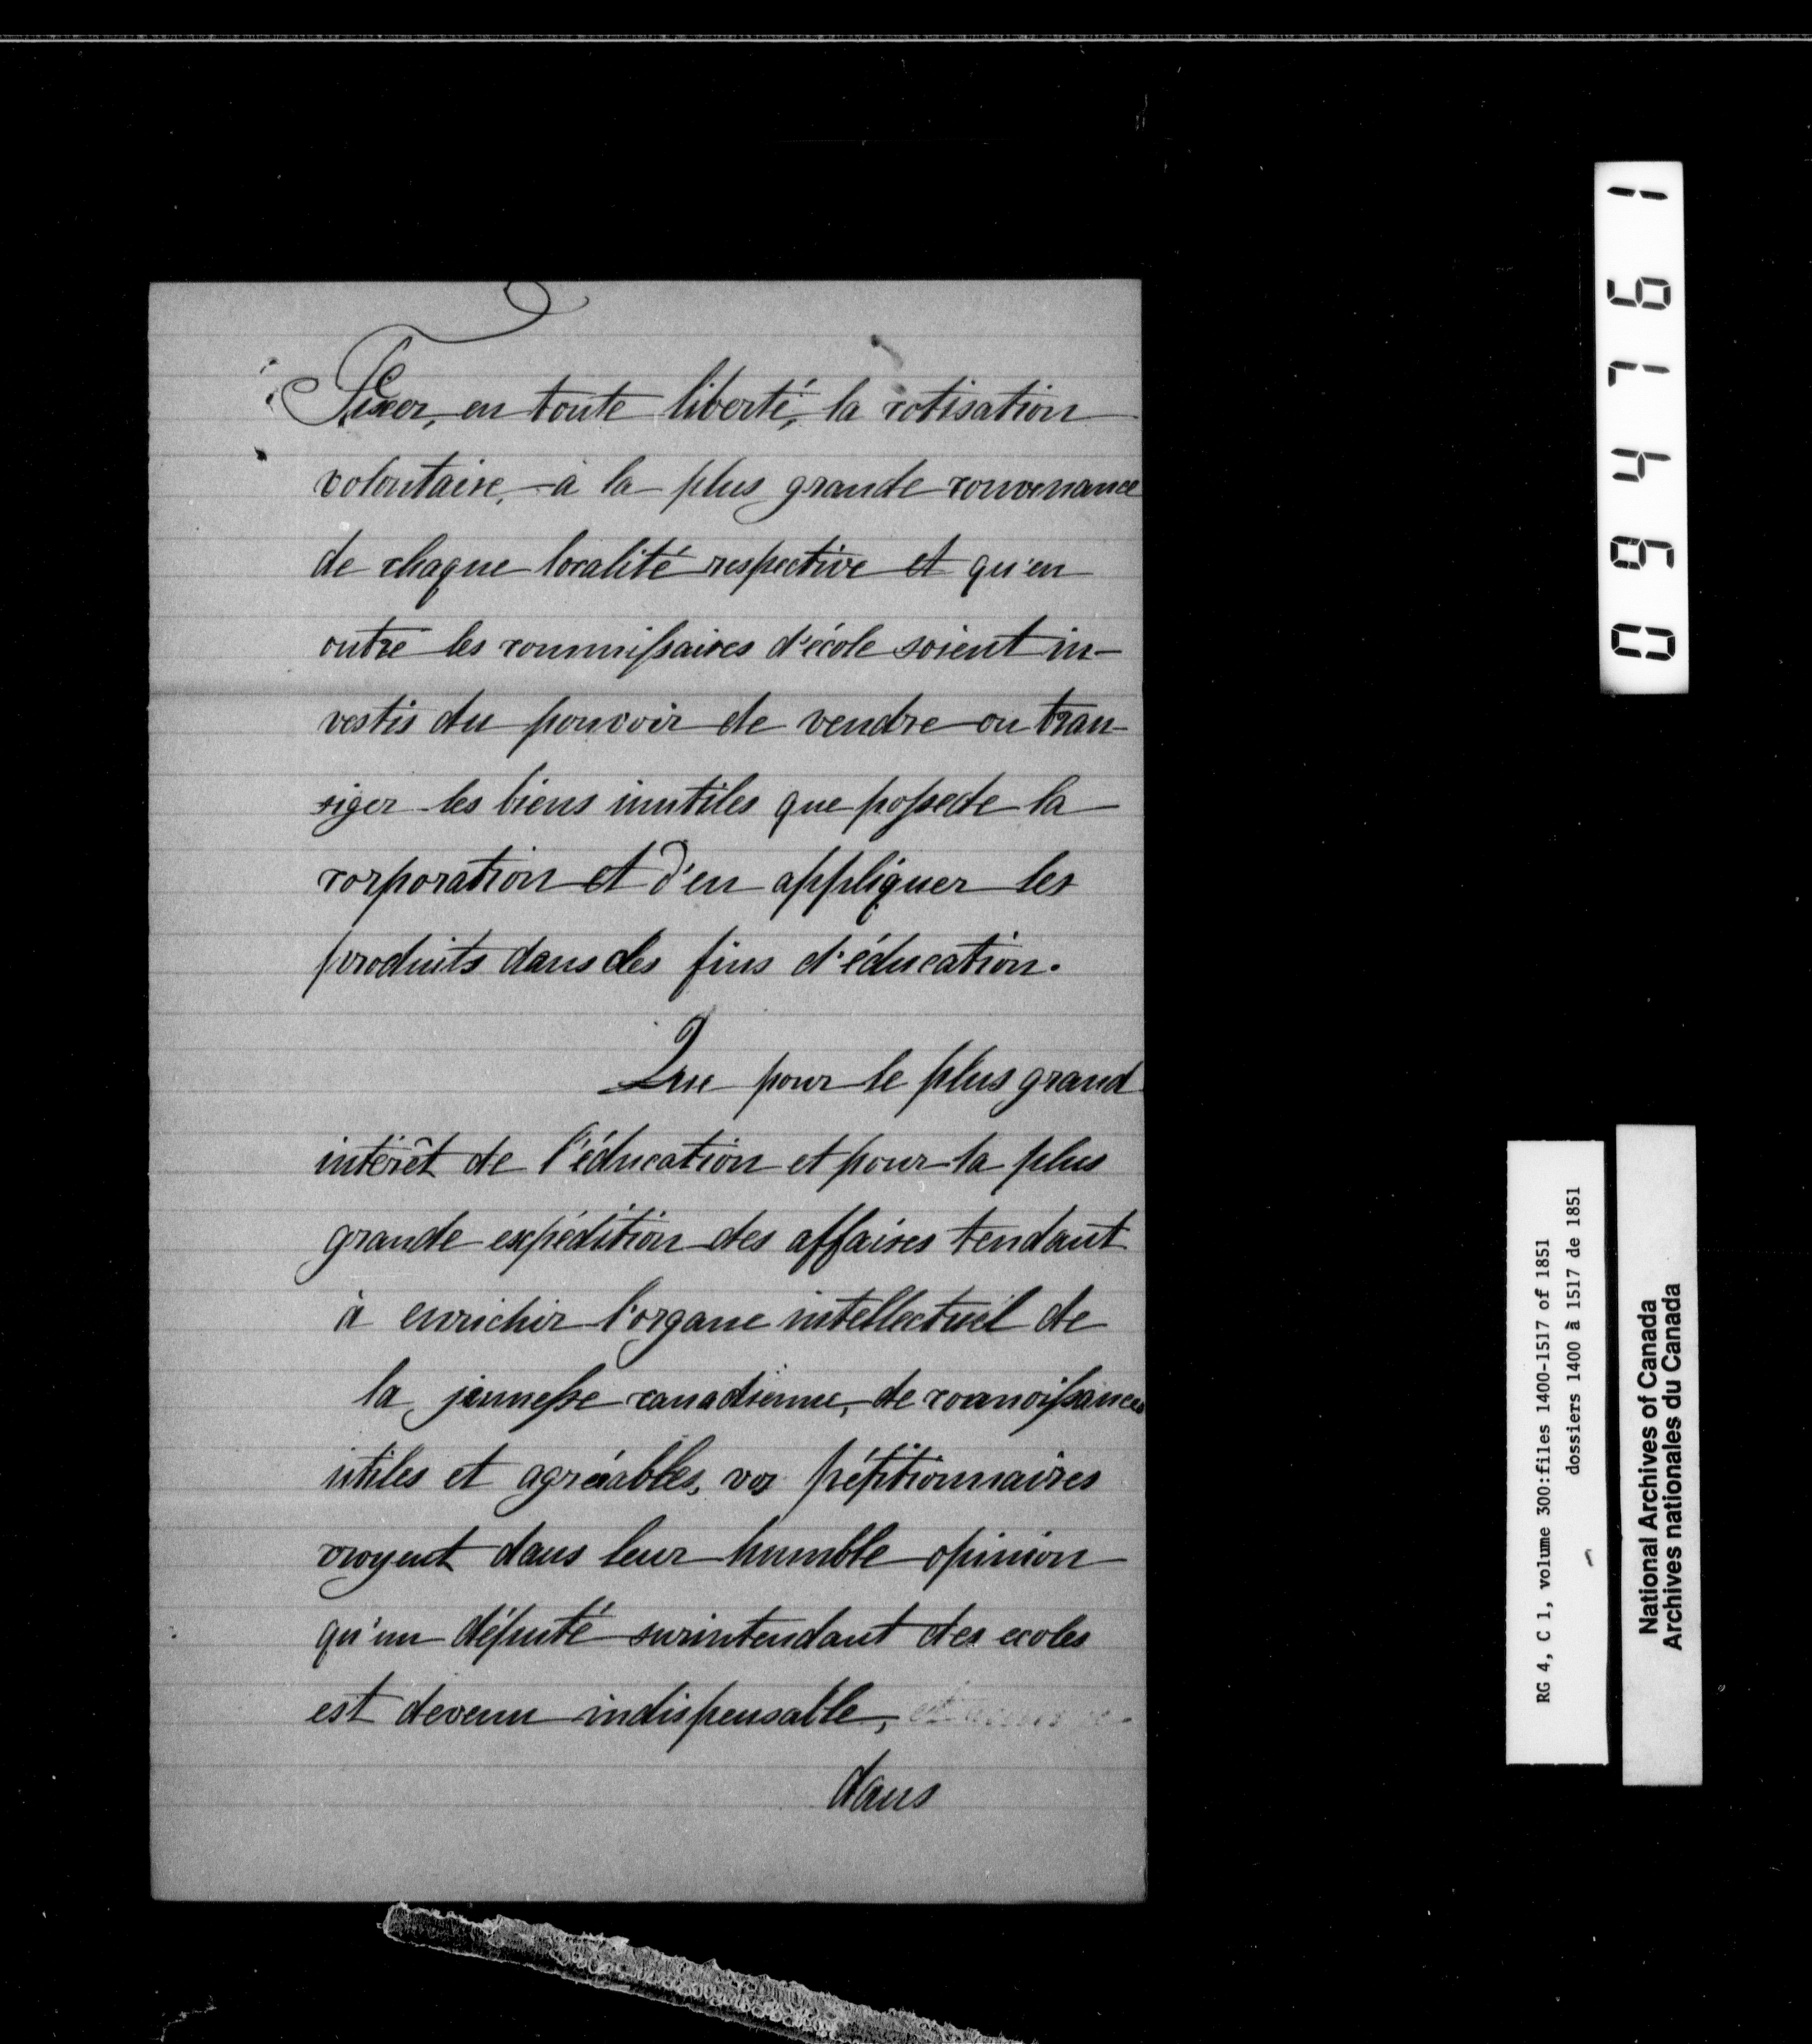 Fixer, en toute liberté, la cotisation
volontaire, à la plus grande convenance
de chaque localité respective et qu'en
outre les commissaires d'école soient in-
vestis du pouvoir de vendre ou tran-
siger les biens inutiles que possede la
corporation et d'en appliquer les
produits dans des fins d'éducation.
Que pour le plus grand
intérêt de l'éducation et pour la plus
grande expédition des affaires tendant
à enrichir l'organe intellectuel de
la jeunesse canadienne, de connoissances
utiles et agréables, vos pétitionnaires
croyent dans leur humble opinion
qu'un député surintendant des ecoles
est devenu indispensable,
dans
094761
RG 4, C 1, volume 300:files 1400-1517 of 1851
dossiers 1400 à 1517 de 1851
National Archives of Canada
Archives nationales du Canada